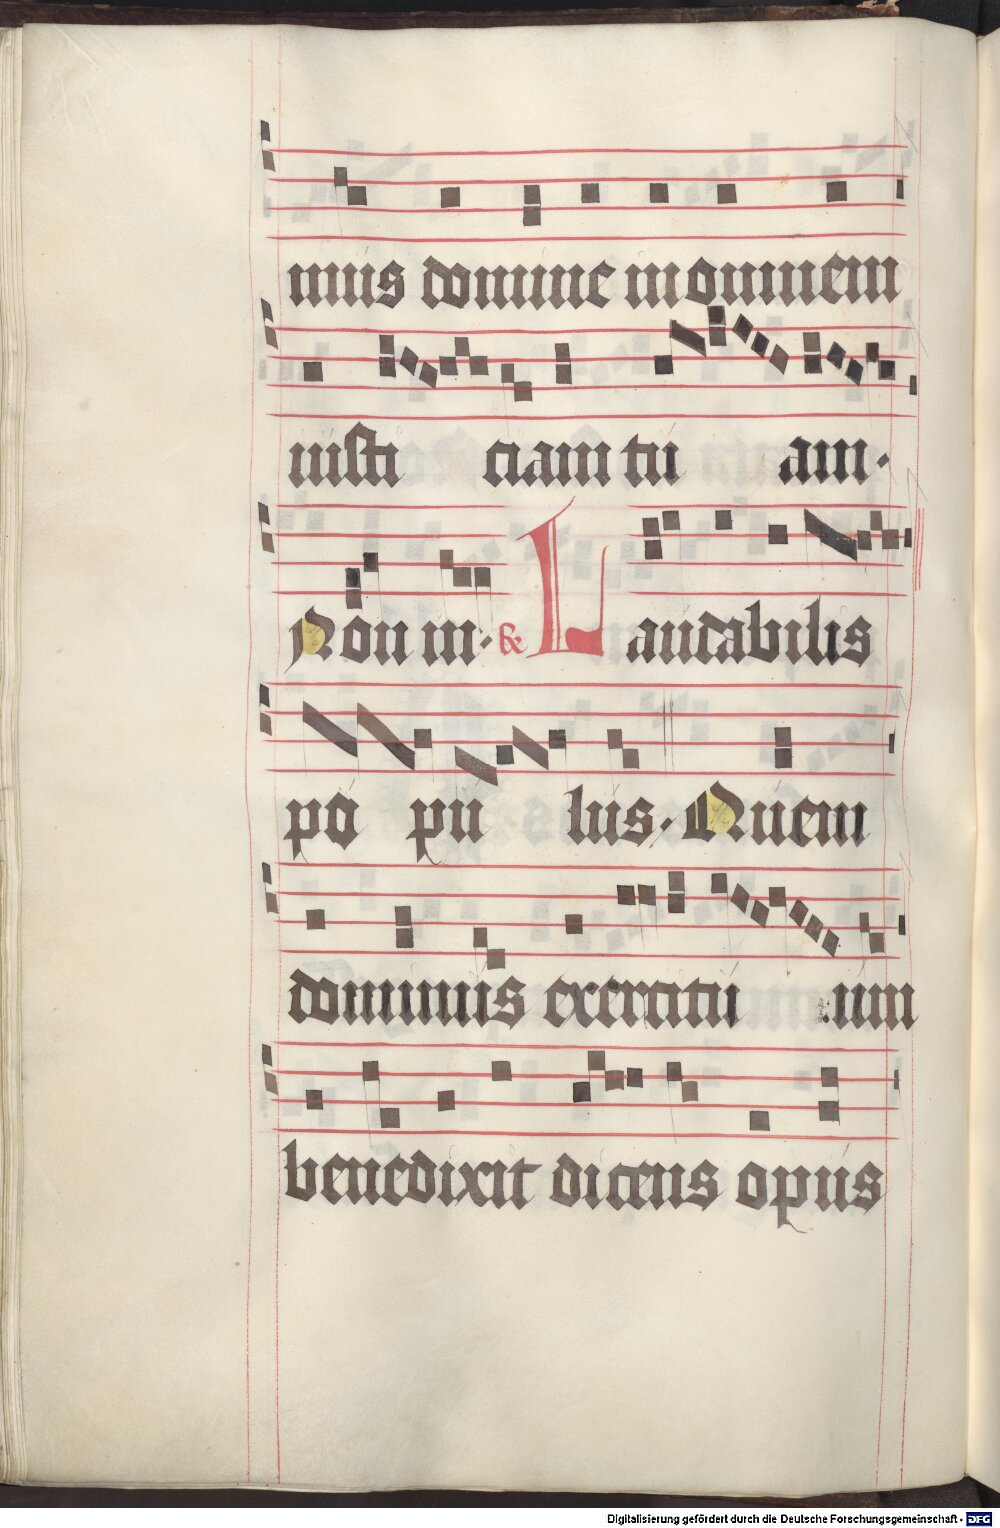 mus domine in omnem
iusti ciam tu am.
Non in. Re Laudabilis
po pu lus. Quem
dominus exercitu .um
benedixit dicens opus
Digitalisierung gefördert durch die Deutsche Forschungsgemeinschaft - DFG